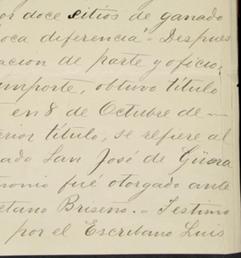 or doce sitios de ganado
oca diferencia. Despues
acion de parte y oficio;
importe, obtuvo título
en 8 de Octubre de —
erior título, se refiere al
ado San José de Güora
monio fué otorgado ante
etano Briseño. — Testimo
por el Escribano Luis